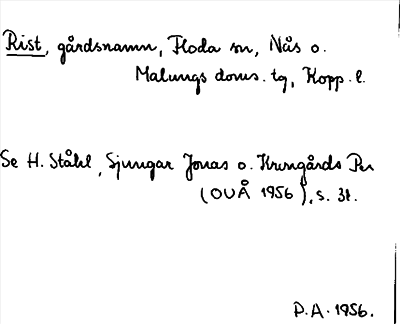 Rist, gårdsnamn, Floda sn, Nås o.
Malungs doms. tg, Kopp. l.
Se H. Ståhl, Sjungar Jonas o. Krongårds Per
(OUÅ 1956), s. 31.
P.A. 1956.